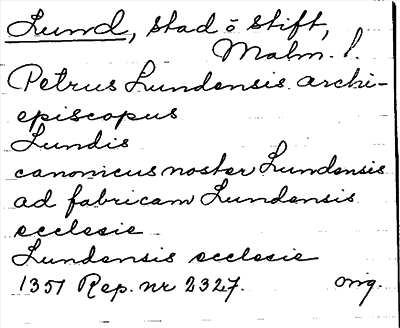 Lund, stad o stift,
Malm. l.
Petrus Lundensis archi-
episcopus
Lundis
canonicus noster Lundensis
ad fabricam Lundensis
ecclesie
Lundensis ecclesie
1351 Rep. nr 2327. orig.